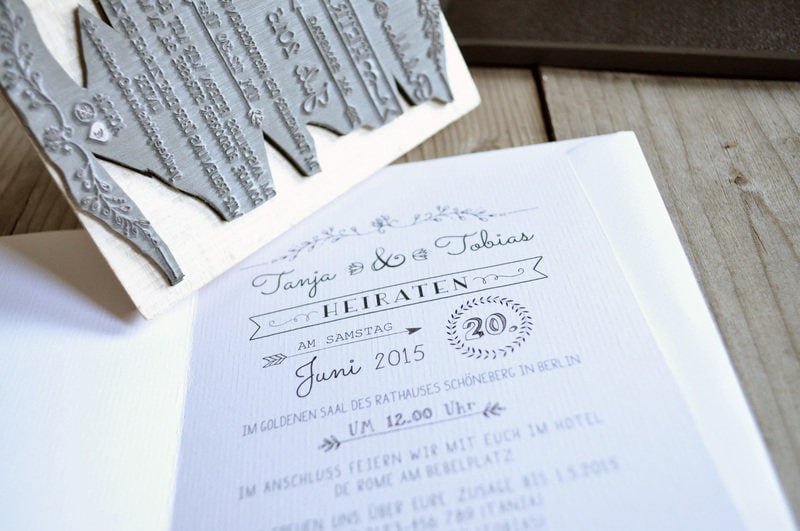 Tanja & Tobias
HEIRATEN
AM SAMSTAG
20.
Juni 2015
IM GOLDENEN SAAL DES RATHAUSES SCHÖNEBERG IN BERLIN
UM 12.00 Uhr
IM ANSCHLUSS FEIERN WIR MIT EUCH IM HOTEL
DE ROME AM BEBELPLATZ
FREUEN UNS ÜBER EURE ZUSAGE BIS 1.5.2015
0123-456 789 (TANJA)
(TOBIAS)